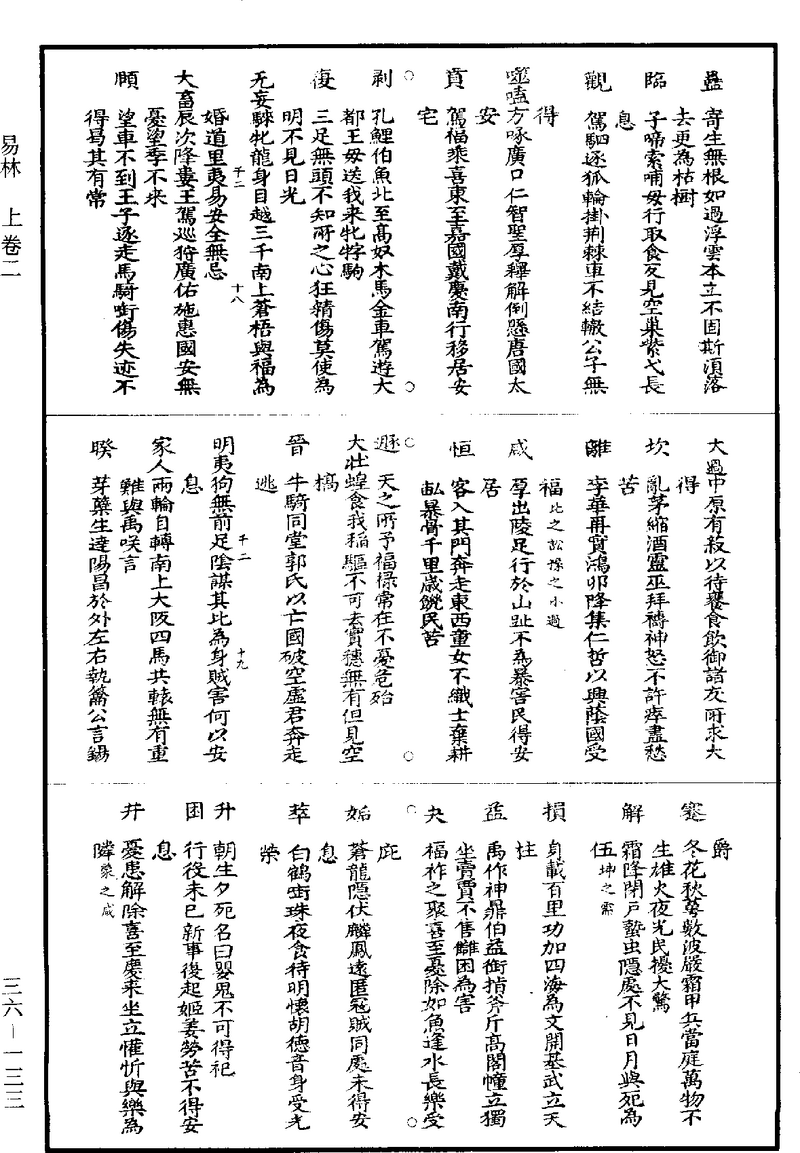 易林　上卷二
蠱　寄生無根如過浮雲本立不固斯湏落
去更為枯樹
臨　子啼索哺母行取食反見空巢訾弋長
息
觀　駕駟逐狐輪掛荆棘車不結轍公子無
得
噬嗑方啄廣口仁智聖厚釋解倒懸唐國太
安
賁　駕福乘喜東至嘉國戴慶南行移居安
宅
剥　孔鯉伯魚北至髙奴木馬金車駕遊大
都王母送我来牝牸駒
復　三足無頭不知所之心狂精傷莫使為
明不見日光
无妄騄牝龍身日越三千南上蒼梧與福為
婚道里夷易安全無忌
大畜辰次降婁王駕巡狩廣佑施惠國安無
憂望季不来
頥　望車不到王子逐走馬騎啣傷失迹不
得曷其有常
大過中原有菽以待饔食飲御諸友所求大
得
坎　亂茅縮酒靈巫拜禱神怒不許瘁盡愁
苦
離　李華再實鴻卵降集仁哲以興蔭國受
福 比之訟 噬之小過
咸　孕出陵足行於山趾不為暴害民得安
居
恒　客入其門奔走東西童女不織士棄耕
畆暴骨千里歲饑民苦
遯　天之所予福禄常在不憂危殆
大壯蝗食我稲驅不可去實穗無有但見空
槁
晉　牛騎同堂郭氏以亡國破空虚君奔走
逃
明夷狗無前足陰謀其比為身賊害何以安
息
家人兩輪自轉南上大阪四馬共轅無有重
難與禹咲言
睽　芽蘖生逹陽昌於外左右執籥公言錫
爵
蹇　冬花秋萼數波嚴霜甲兵當庭萬物不
生雄火夜光民擾大驚
解　霜降閉戸蟄虫隠處不見日月與死為
伍 坤之需
損　身載百里功加四海為文開基武立天
柱
益　禹作神鼎伯益銜指斧斤高閣幢立獨
坐賣賈不售讎困為害
夬　福祚之聚喜至憂除如魚逢水長樂受
庇
姤　蒼龍隠伏麟鳳逺匿冦賊同處未得安
息
萃　白鶴啣珠夜食待明懷胡德音身受光
榮
升　朝生夕死名曰嬰鬼不可得祀
困　行役未已新事復起姬姜勞苦不得安
息
井　憂患解除喜至慶来坐立懽忻與樂為
隣 蒙之咸
三六－一三三